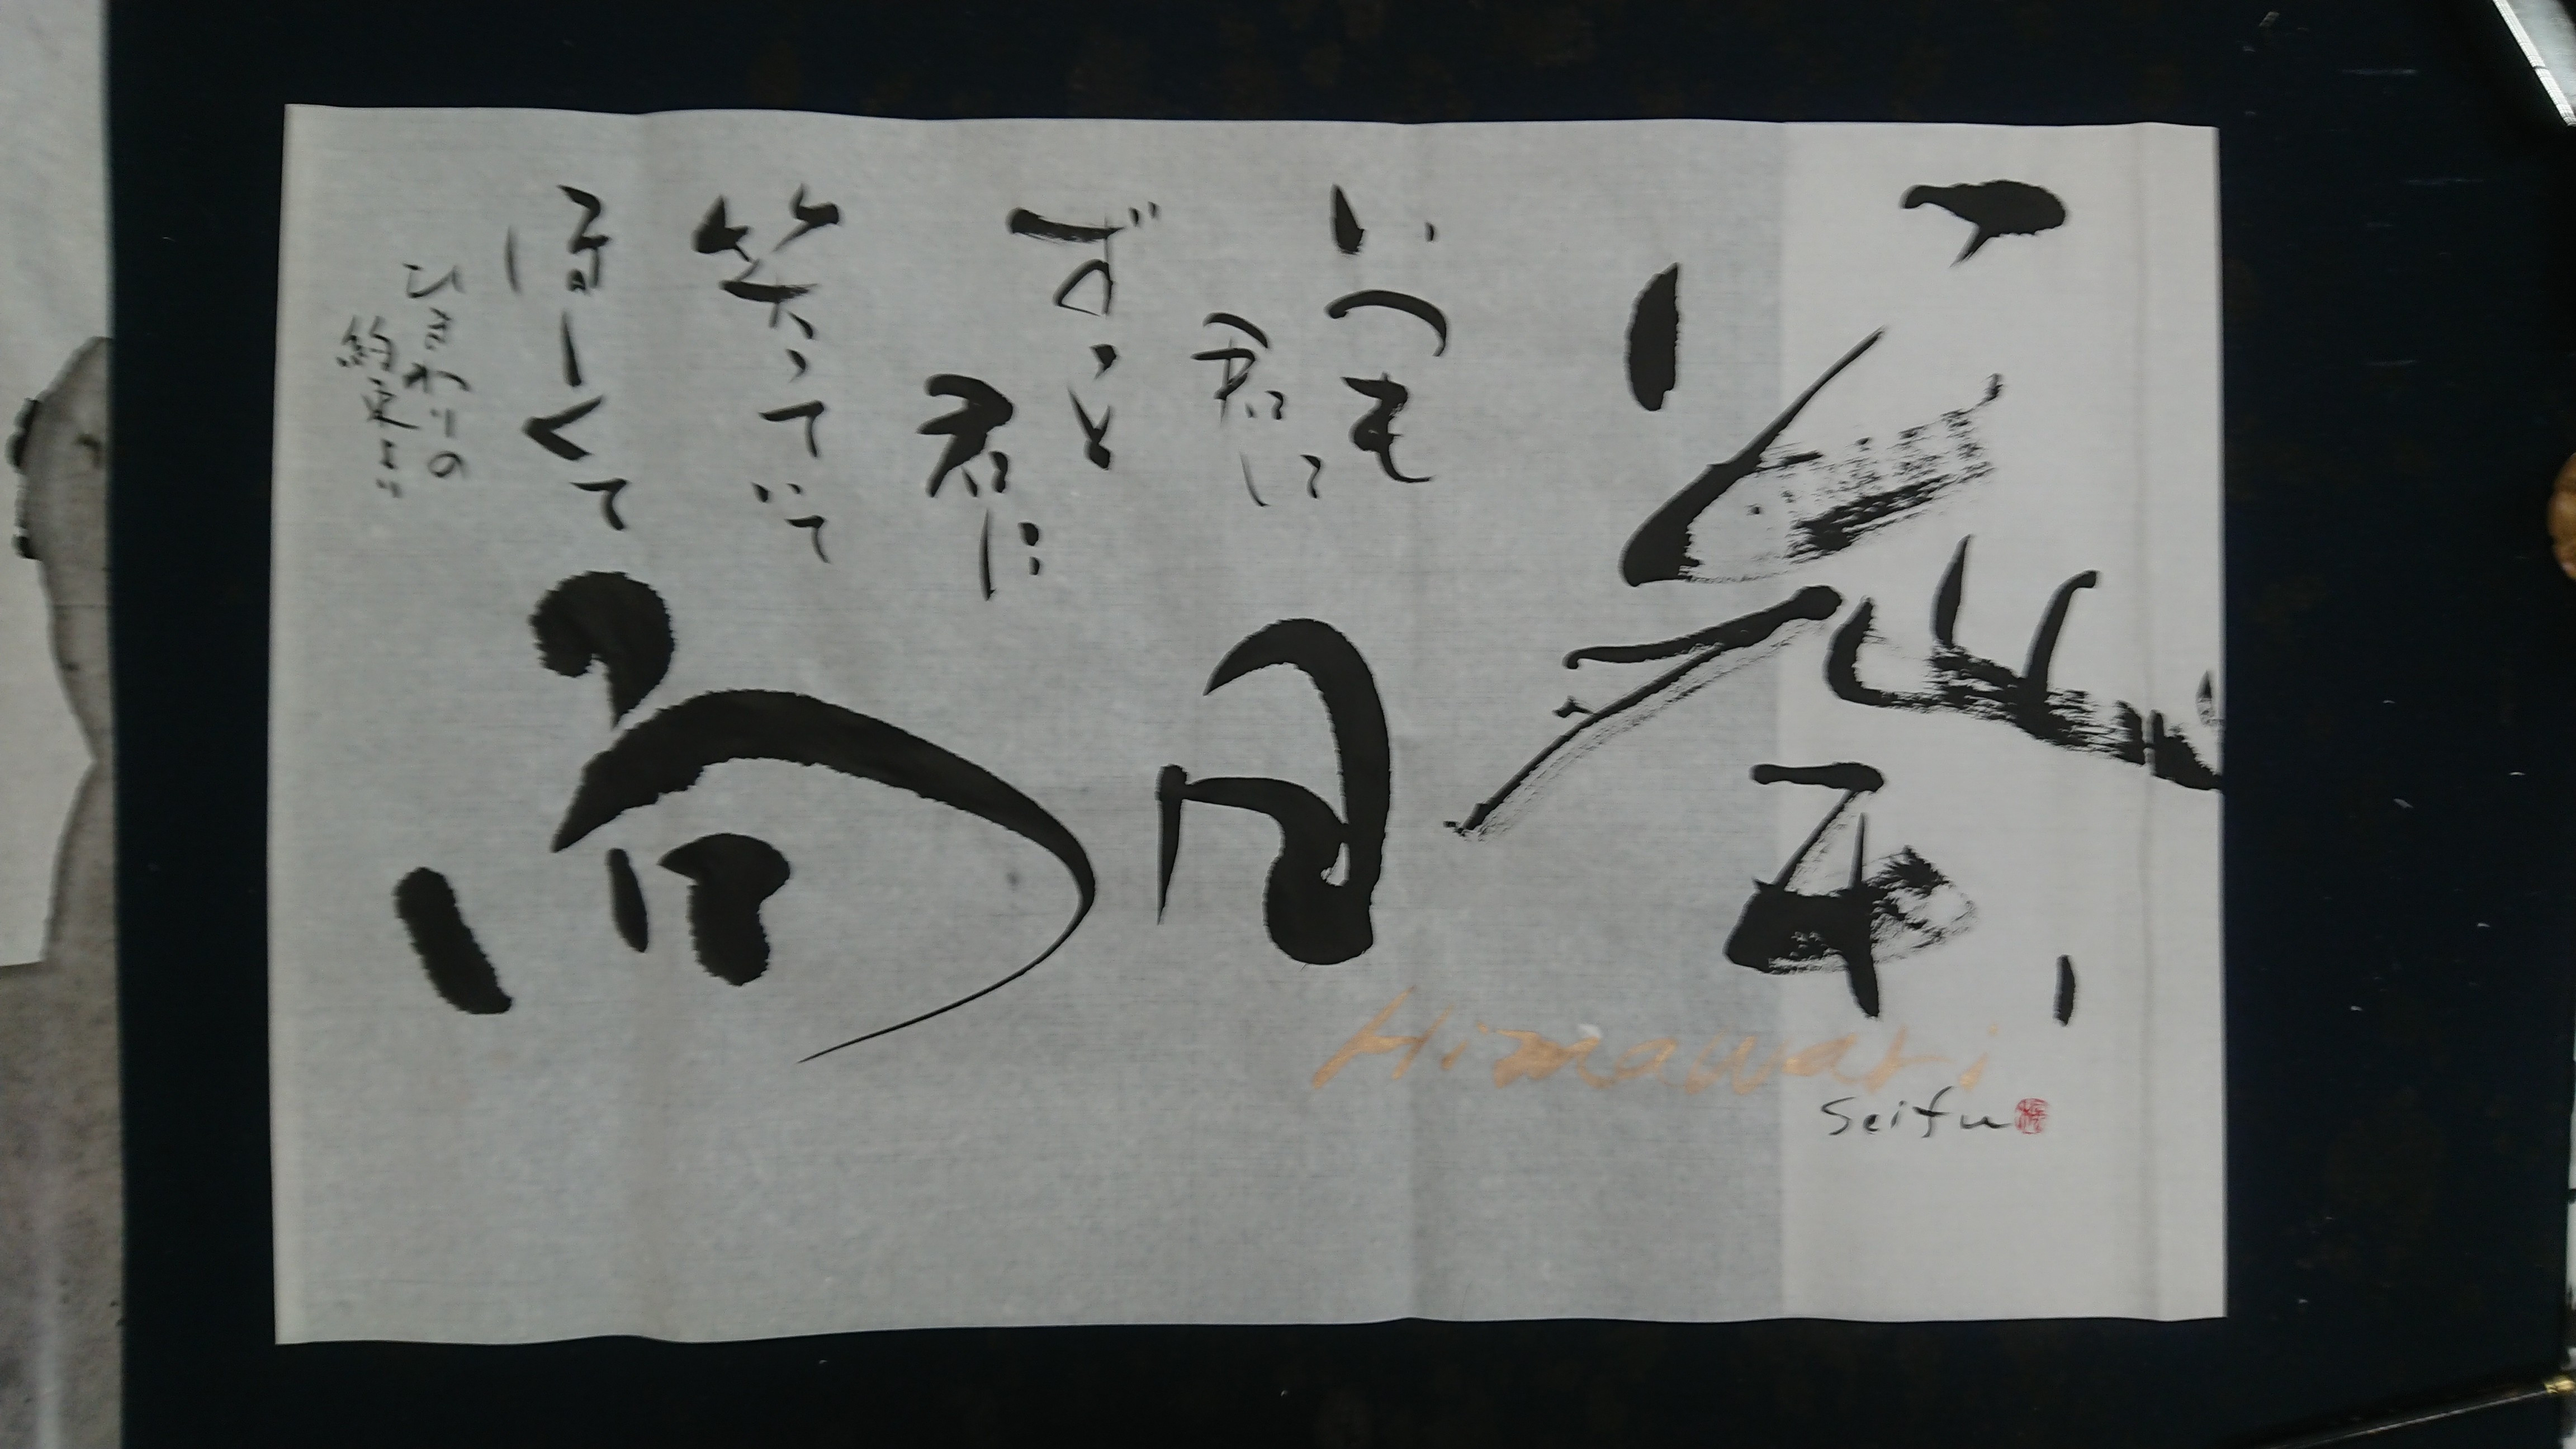 向日葵
いつも
君に
ずっと
君に
笑っていて
ほしくて
ひまわりの
約束より
Himawari
Seifu